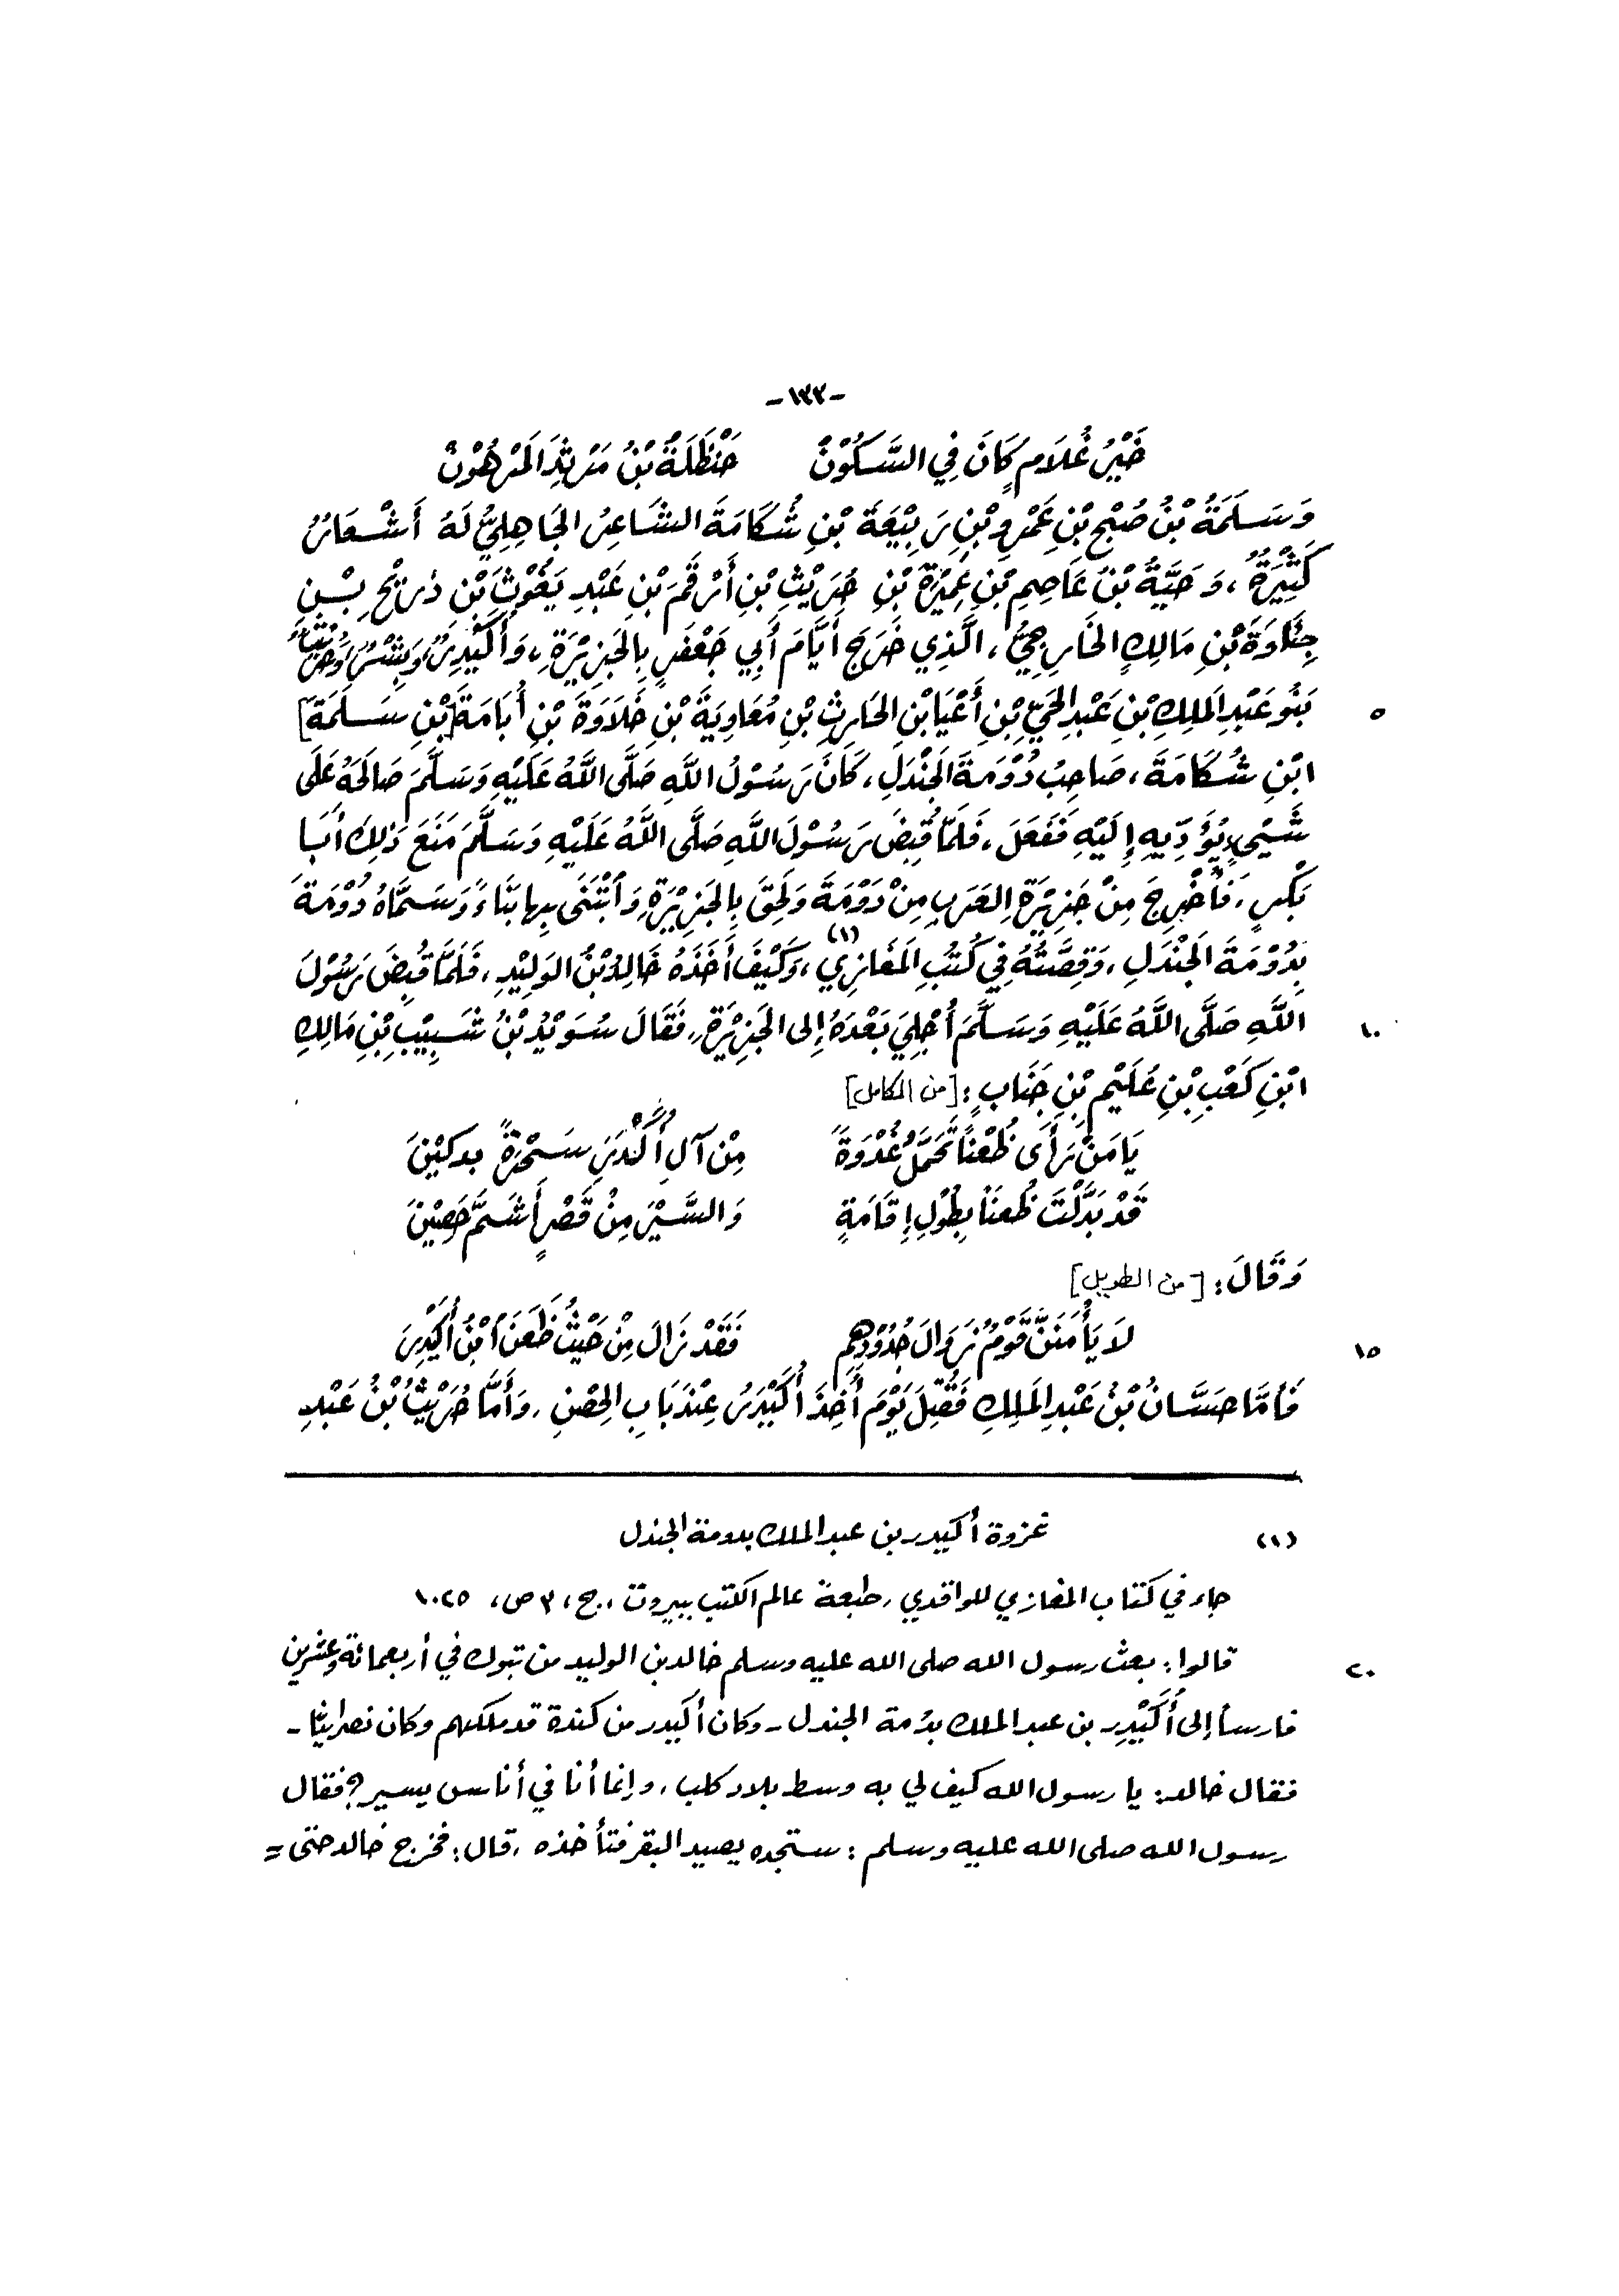 -١٣٣-
خَيْرُ غُلَامٍ كَانَ فِي السَّكُوْنْ حَنْظَلَةُ بْنُ مَرْثَدِ المَرْهُوْنْ
وَسَلَمَةُ بْنُ صُبْحِ بْنِ عَمْرِو بْنِ رَبِيْعَةَ بْنِ شُكَامَةَ الشَّاعِرُ الجَاهِلِيُّ لَهُ أَشْعَارٌ
كَثِيْرَةٌ، وَحَيَّةُ بْنُ عَاصِمِ بْنِ عَمِيْرَةَ بْنِ حُرَيْثِ بْنِ أَرْقَمَ بْنِ عَبْدِ يَغُوْثَ بْنِ ذُرَيْحِ بْنِ
جِئَاوَةَ بْنِ مَالِكٍ الخَارِجِيُّ، الَّذِي خَرَجَ أَيَّامَ أَبِي جَعْفَرٍ بِالجَزِيْرَةِ، وَأُكَيْدِرُ وَبِشْرٌ وَحُرَيْثٌ
٥ بَنُو عَبْدِ المَلِكِ بْنِ عَبْدِ الحَيِّ بْنِ أَعْيَا بْنِ الحَارِثِ بْنِ مُعَاوِيَةَ بْنِ خَلَاوَةَ بْنِ أُبَامَةَ [بْنِ سَلَمَةَ]
ابْنِ شُكَامَةَ، صَاحِبُ دُوْمَةَ الجَنْدَلِ، كَانَ رَسُوْلُ اللَّهِ صَلَّى اللَّهُ عَلَيْهِ وَسَلَّمَ صَالَحَهُ عَلَى
شَيْءٍ يُؤَدِّيهِ إِلَيْهِ فَفَعَلَ، فَلَمَّا قُبِضَ رَسُوْلُ اللَّهِ صَلَّى اللَّهُ عَلَيْهِ وَسَلَّمَ مَنَعَ ذَلِكَ أَبَا
بَكْرٍ، فَأُخْرِجَ مِنْ جَزِيْرَةِ العَرَبِ مِنْ دَوْمَةَ وَلَحِقَ بِالجَزِيْرَةِ، وَابْتَنَى بِهَا بِنَاءً وَسَمَّاهُ دُوْمَةَ
بِدُوْمَةَ الجَنْدَلِ، وَقِصَّتُهُ فِي كُتُبِ المَغَازِي (١)، وَكَيْفَ أَخَذَهُ خَالِدُ بْنُ الوَلِيْدِ، فَلَمَّا قُبِضَ رَسُوْلُ
١٠ اللَّهِ صَلَّى اللَّهُ عَلَيْهِ وَسَلَّمَ أُجْلِيَ بَعْدَهُ إِلى الجَزِيْرَةِ، فَقَالَ سُوَيْدُ بْنُ شَبِيْبِ بْنِ مَالِكِ
ابْنِ كَعْبِ بْنِ عُلَيْمِ بْنِ جَنَابٍ: [من الكامل]
يَا مَنْ رَأَى ظُعْنًا تَحَمَّلُ غُدْوَةً مِنْ آلِ أُكْدُرَ سَحْرَةً
قَدْ بَدَّلْتَ ظُعنَاً بِطُوْلِ إِقَامَةٍ وَالسَّيْرَ مِنْ قَصْرٍ أَشَمَّ حَصِيْنَ
وَقَالَ: [من الطويل]
١٥ لَا يَأْمَنَنَّ قَوْمٌ زَوَالَ جُدُوْدِهِمِ فَقَدْ زَالَ مِنْ حَيْثُ ظَعَنَ ابْنُ أُكَيْدِرَ
فَأَمَّا حَسَّانُ بْنُ عَبْدِ المَلِكِ فَقُتِلَ يَوْمَ أُخِذَ أُكَيْدِرُ عِنْدَ بَابِ الحِصْنِ، وَأَمَّا حُرَيْثُ بْنُ عَبْدِ
(١) غزوة أكيدر بن عبد الملك بدومة الجندل
جاء في كتاب المغازي للواقدي، طبعة عالم الكتب ببيروت، ج، ٣ ص، ١٠٢٥
٢٠ قالوا: بعث رسول الله صلى الله عليه وسلم خالد بن الوليد من تبوك في أربعمائة وعشرين
فارساً إلى أُكَيْدِر بن عبد الملك بدُمة الجندل - وكان أُكيدر من كندة قد ملكهم وكان نصرانيّاً -
فقال خالد: يا رسول الله كيف لي به وسط بلاد كلب، وإنما أنا في أناس يسير؟ فقال
رسول الله صلى الله عليه وسلم: ستجده يصيد البقر فتأخذه، قال: فخرج خالد حتى =